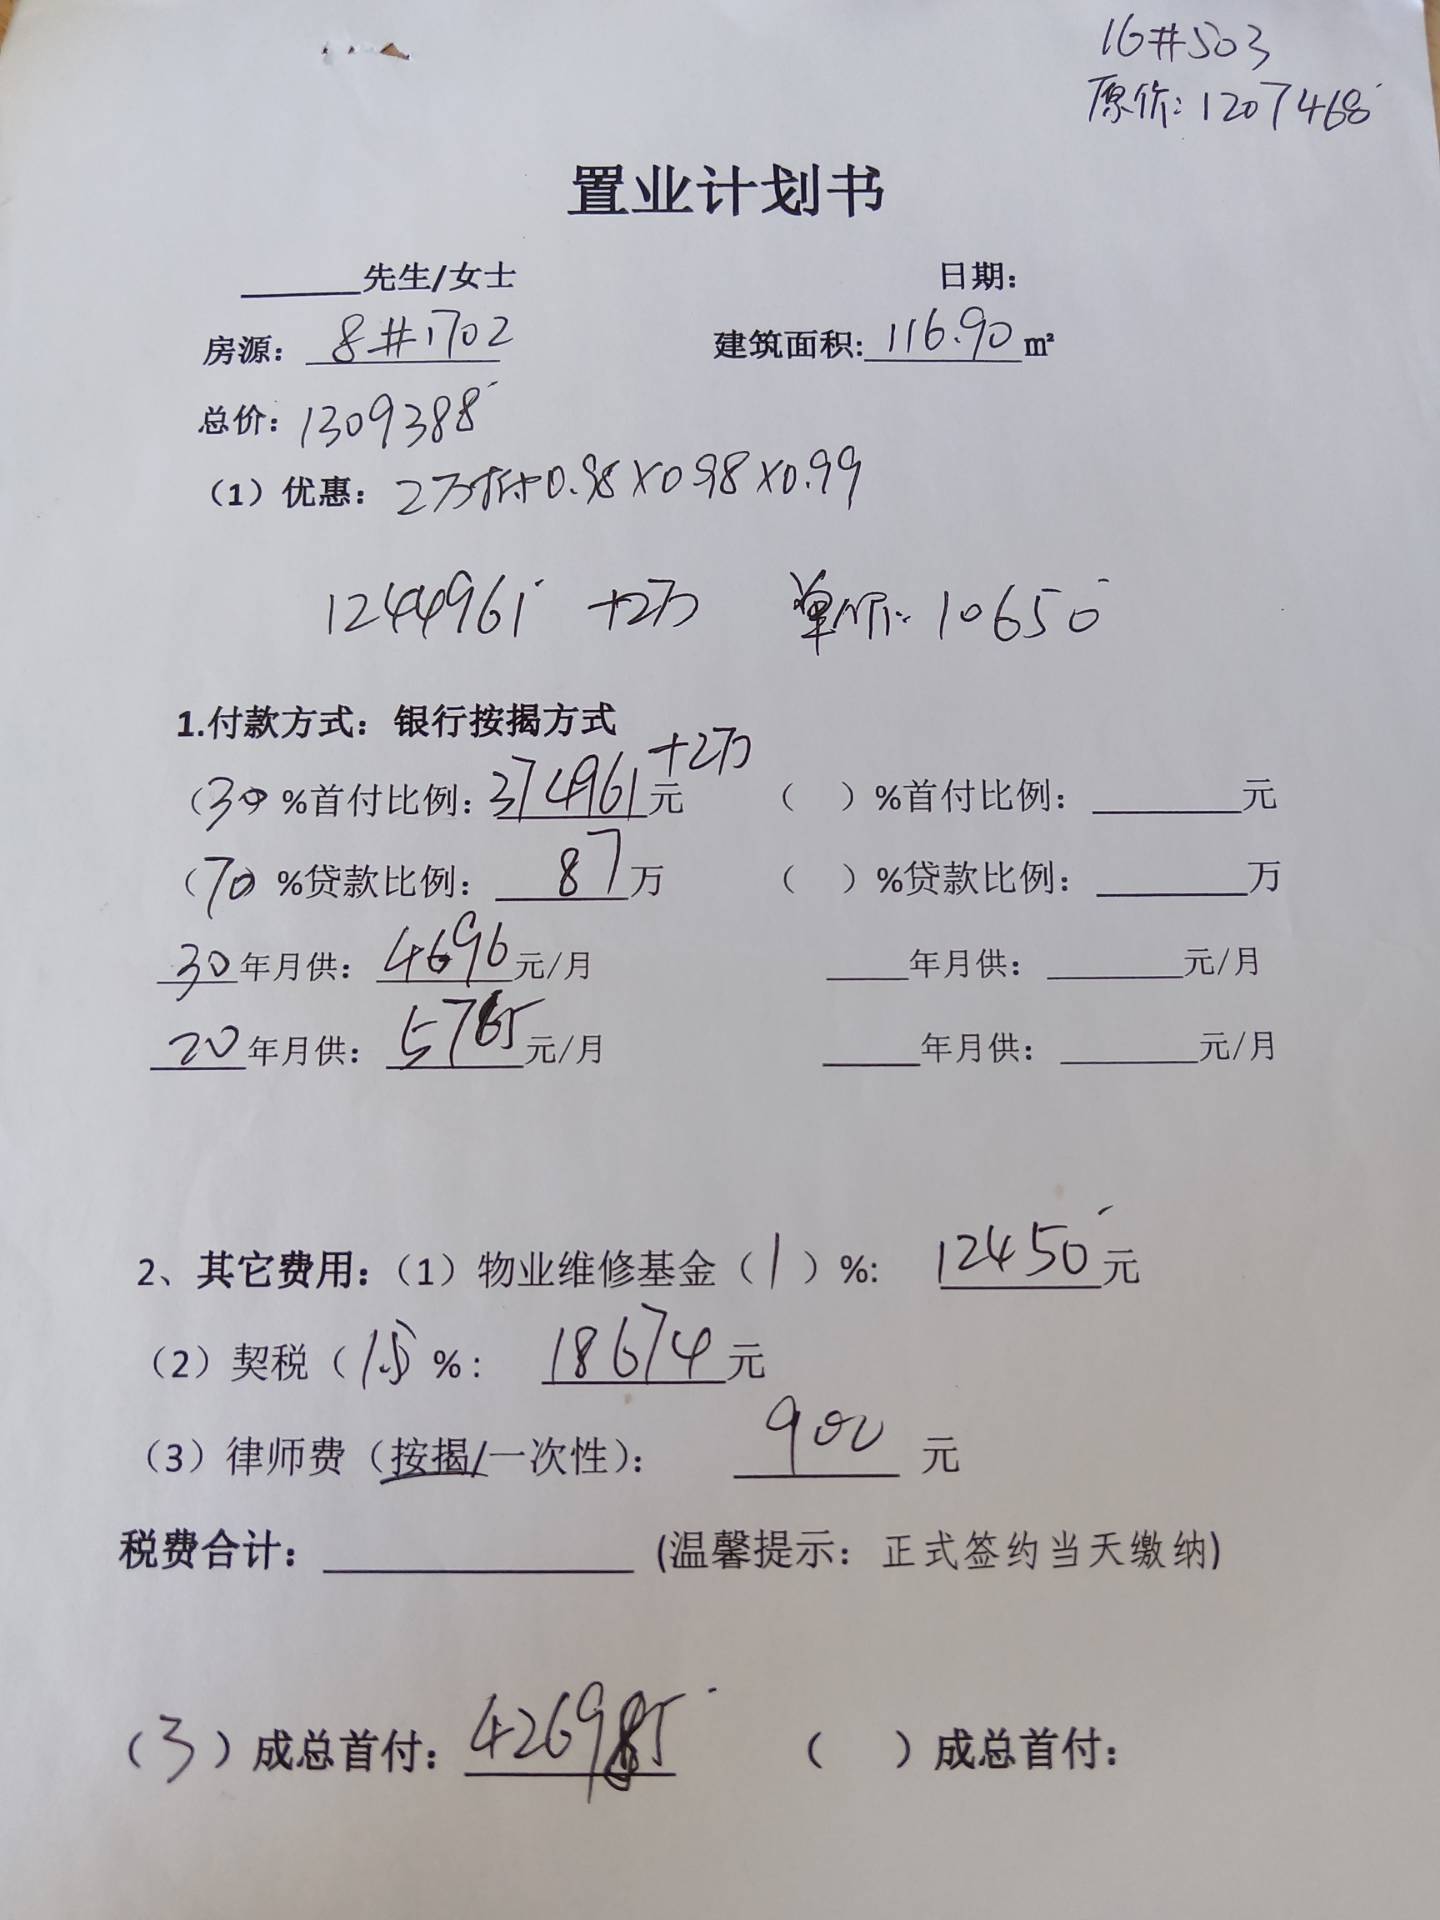 16#503
原价:1207468
置业计划书
先生/女士 日期:
房源: 8#1702 建筑面积:116.90m²
总价: 1309388
(1)优惠: 2万抵 0.98×0.98×0.99
1244961 +2万 单价: 10650
1.付款方式: 银行按揭方式
(30)%首付比例: 374961元 +2万 ( )%首付比例: 元
(70)%贷款比例: 87万 ( )%贷款比例: 万
30年月供: 4696元/月 年月供: 元/月
20年月供: 5765元/月 年月供: 元/月
2、其它费用:(1)物业维修基金(1)%: 12450元
(2)契税(1.5)%: 18674元
(3)律师费(按揭/一次性): 900元
税费合计: (温馨提示:正式签约当天缴纳)
(3)成总首付: 426985 ( )成总首付: